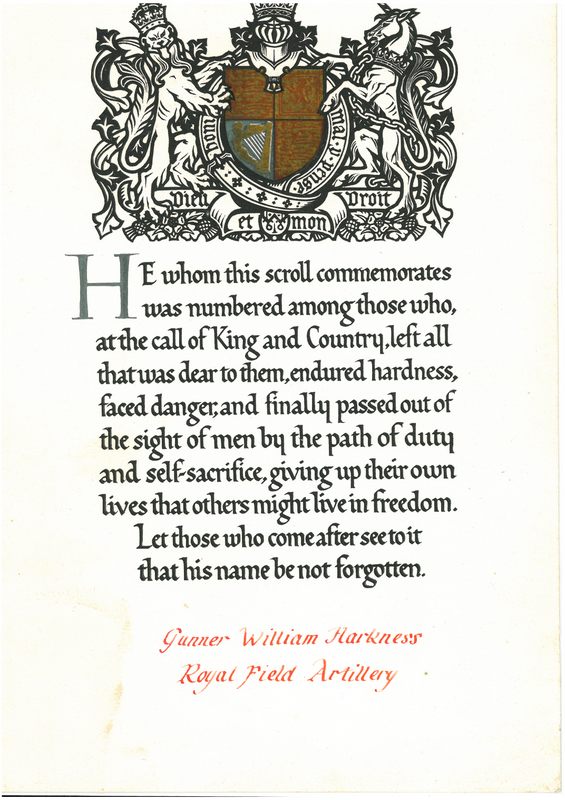 mal · y · pense
Dieu
Droit
et
mon
HE whom this scroll commemorates
was numbered among those who,
at the call of King and Country, left all
that was dear to them, endured hardness,
faced danger, and finally passed out of
the sight of men by the path of duty
and self-sacrifice, giving up their own
lives that others might live in freedom.
Let those who come after see to it
that his name be not forgotten.
Gunner William Harkness
Royal Field Artillery